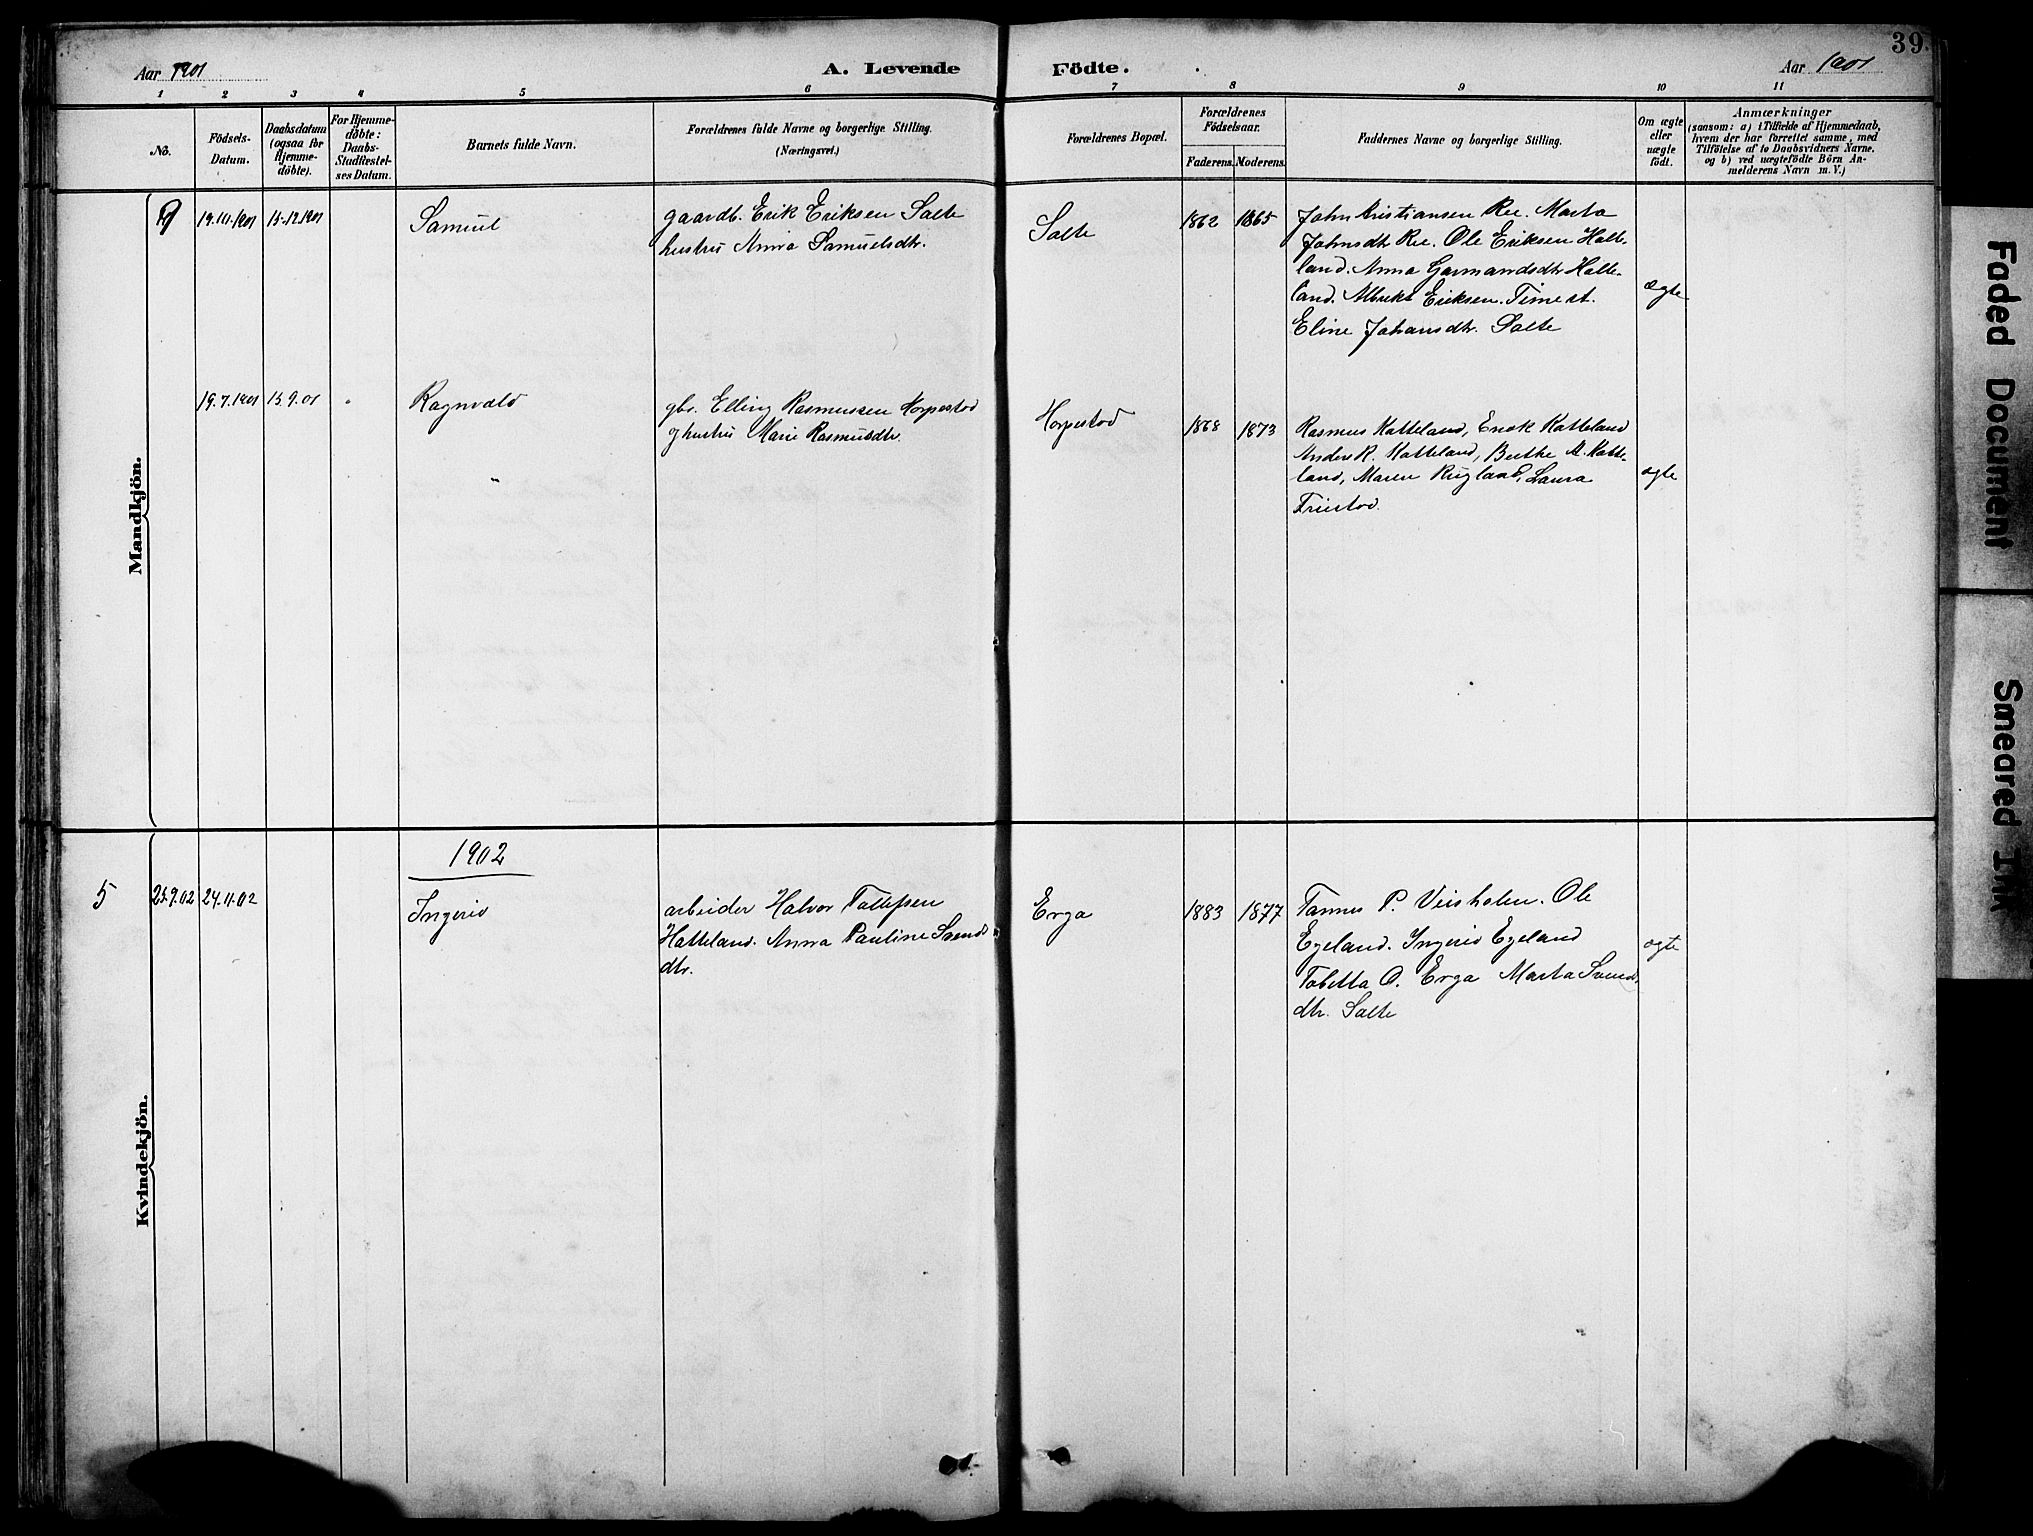 39.
Aar 1901
A. Levende Födte.
Aar 1901
1 2 3 4 5 6 7 8 9 10 11
No.
Födsels-
Datum.
Daabsdatum
(ogsaa for
Hjemme-
döbte).
For Hjemme-
döbte:
Daabs-
Stadfæstel-
ses Datum.
Barnets fulde Navn.
Forældrenes fulde Navne og borgerlige Stilling.
(Næringsvei.)
Forældrenes Bopæl.
Forældrenes
Födselsaar.
Faderens. Moderens.
Faddernes Navne og borgerlige Stilling.
Om ægte
eller
uægte
födt.
Anmærkninger
(saasom: a) i Tilfælde af Hjemmedaab,
hvem der har forrettet samme, med
Tilföielse af to Daabsvidners Navne.
og b) ved uægtefödte Börn An-
melderens Navn m. V.)
Mandkjön.
9
19.10.1901
15.12.1901
Samuel
gaardb. Erik Eriksen Salte
hustru Anna Samuelsdtr.
Salte
1862
1865
John Kristiansen Ree. Marta
Johnsdtr Ree. Ole Eriksen Hatte-
land. Anna Garmandsdtr Hatte-
land. Albrekt Eriksen. Time st.
Eline Johansdtr. Salte
ægte
19.7.1901
15.9.01
Ragnvald
gbr. Elling Rasmussen Horpestad
og hustru Marie Rasmusdtr.
"
Horpestad
1868
1873
Rasmus Katteland, Enok Katteland
Anders R. Katteland, Berthe M. Katte-
land, Maren Rugland, Laura
Friestad.
ægte
Kvindekjön.
1902
5
25.9.02
24.11.02
Ingerid
arbeider Halvor Tollefsen
Hatteland. Anna Pauline Svends
dtr.
Erga
1883
1877
Tannes P. Veisholen. Ole
Egeland. Ingerid Egeland
Tobetta O. Erga Marta Svends
dtr. Salte
ægte
Faded Document
Smeared Ink